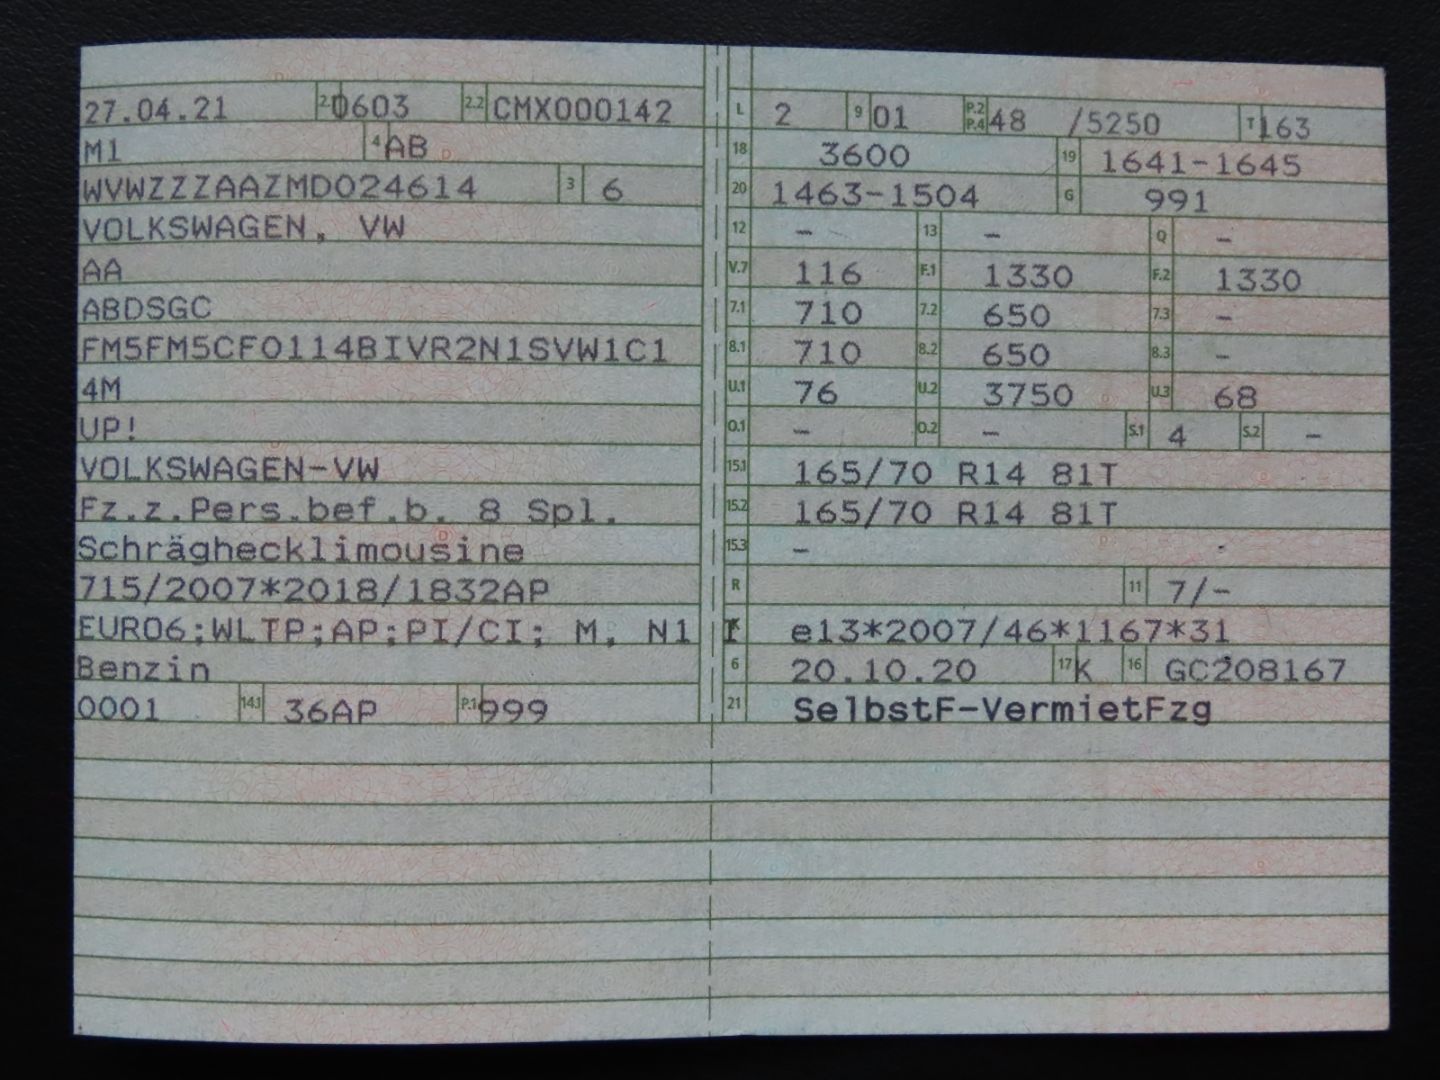 27.04.21 2.1 0603 2.2 CMX000142
M1 4 AB
WVWZZZAAZMD024614 3 6
VOLKSWAGEN, VW
AA
ABDSGC
FM5FM5CF0114BIVR2N1SVW1C1
4M
UP!
VOLKSWAGEN-VW
Fz.z.Pers.bef.b. 8 Spl.
Schräghecklimousine
715/2007*2018/1832AP
EURO6;WLTP;AP;PI/CI; M, N1 I
Benzin
0001 14.1 36AP P.1 999
L 2 9 01 P.2 P.4 48 /5250 T 163
18 3600 19 1641-1645
20 1463-1504 G 991
12 - 13 - Q -
V.7 116 F.1 1330 F.2 1330
7.1 710 7.2 650 7.3 -
8.1 710 8.2 650 8.3 -
U.1 76 U.2 3750 U.3 68
O.1 - O.2 - S.1 4 S.2 -
15.1 165/70 R14 81T
15.2 165/70 R14 81T
15.3 -
R 11 7/-
K e13*2007/46*1167*31
6 20.10.20 17 K 16 GC208167
21 SelbstF-VermietFzg